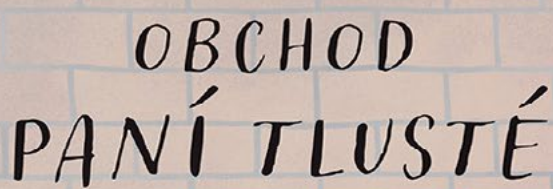 OBCHOD
PANÍ TLUSTÉ